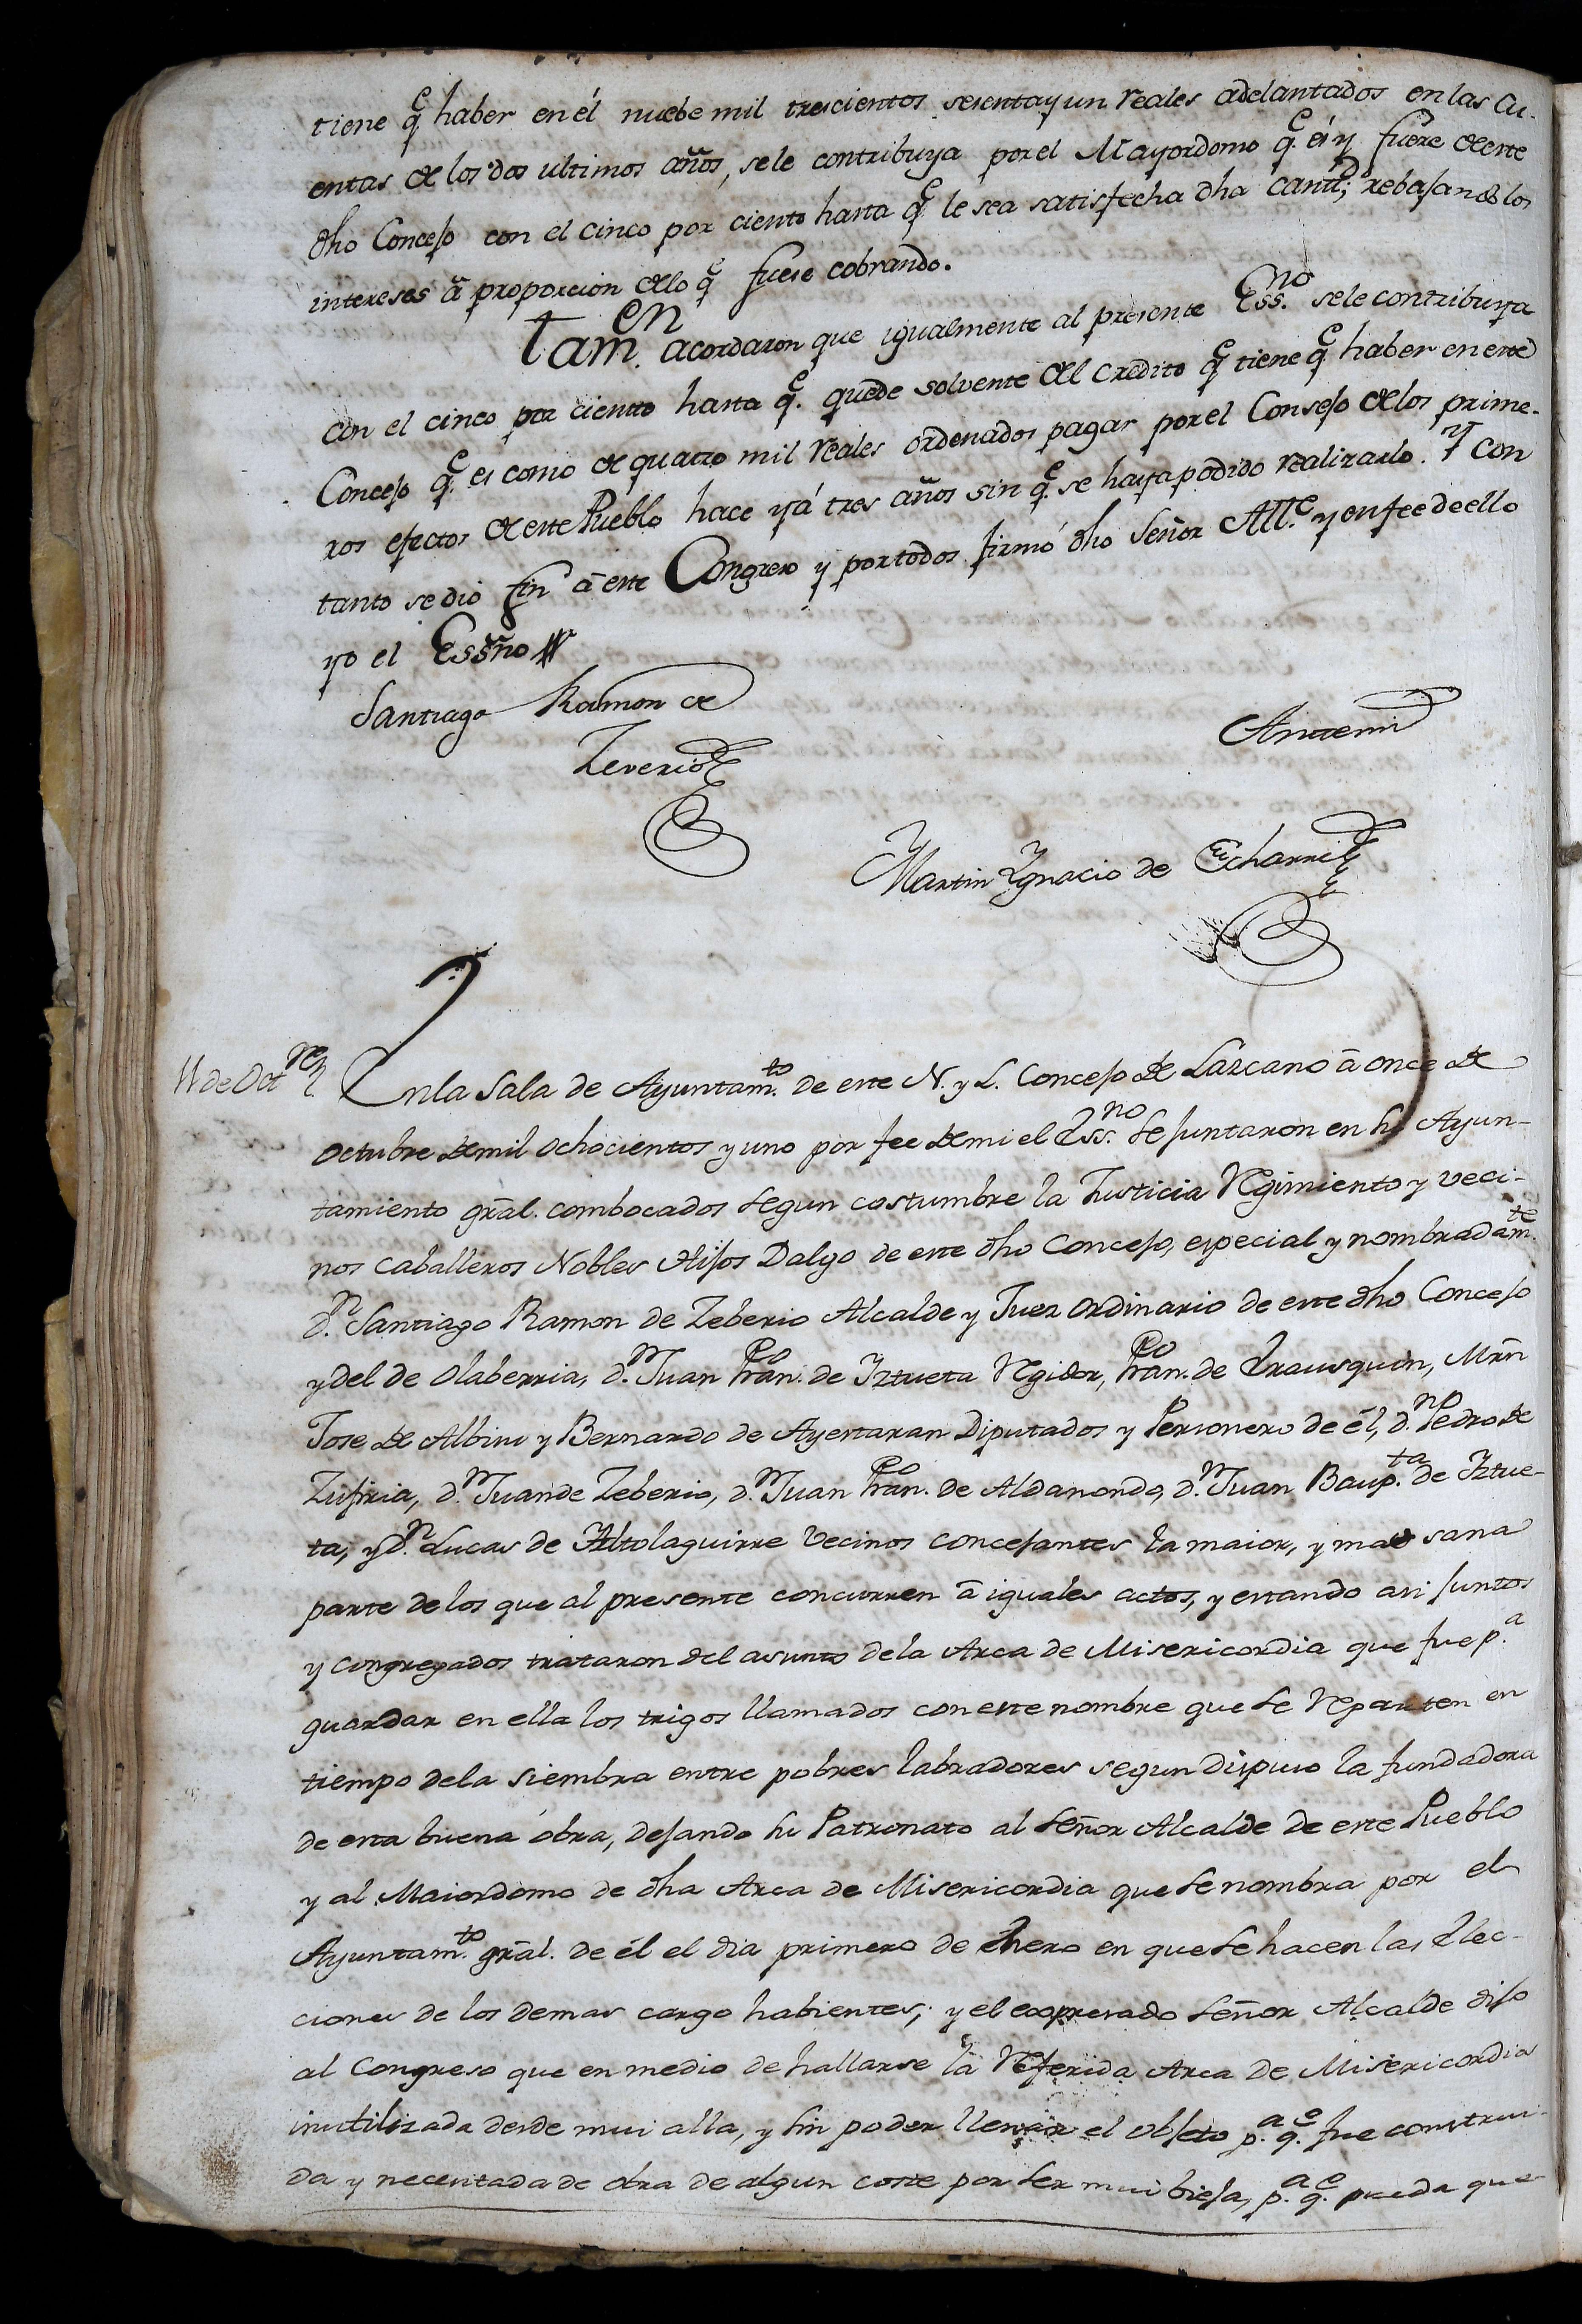 tiene q.e haber en él nuebe mil trescientos sesenta y un reales adelantados en las cu-
entas de los dos ultimos años, se le contribuya por el Mayordomo q.e és y fuere de este
dho Concejo con el cinco por ciento hasta q.e le sea satisfecha dha cantd.; rebajando los
intereses â proporcion de lo q.e fuese cobrando.
Tam.en acordaron que igualmente al presente Ess.no se le contribuya
con el cinco por ciento hasta q.e quede solvente del credito q.e tiene q.e haber en este
Concejo q.e es como de quatro mil reales ordenados pagar por el Consejo de los prime-
ros efectos de este Pueblo hace yá tres años sin q.e se haya podido realizarlo. Y con
tanto se dió fin â este Congreso y por todos firmó dho Señor All.e y en fee de ello
yo el Essño
Santiago Ramon de
Zeverio
Antemi
Martin Ygnacio de Echarri
11 de Oct.re
En la Sala de Ayuntam.to de este N. y L. Concejo de Lazcano â once de
Octubre de mil ochocientos y uno por fee de mi el Ess.no se juntaron en su Ayun-
tamiento grãl. combocados segun costumbre la Justicia Regimiento y veci-
nos Caballeros Nobles Hijos Dalgo de este dho Concejo, especial y nombradam.te
d.n Santiago Ramon de Zeberio Alcalde y Juez ordinario de este dho Concejo
y del de Olaberria, d.n Juan Fran.co de Yztueta Regidor, Fran.co de Yrausquin, Mrñ
Jose de Albisu y Bernardo de Ayestaran Diputados y Personero de él, d.n Pedro de
Zufiria, d.n Juan de Zeberio, d.n Juan Fran.co de Aldanondo, d.n Juan Baup.ta de Yztue-
ta, y d.n Lucas de Altolaguirre Vecinos concejantes la maior, y mas sana
parte de los que al presente concurren â iguales actos, y estando asi juntos
y congregados trataron del asunto de la Arca de Misericordia que fue p.a
guardar en ella los trigos llamados con este nombre que se Reparten en
tiempo de la siembra entre pobres labradores segun dispuso la fundadora
de esta buena obra, dejando su Patronato al señor Alcalde de este Pueblo
y al Maiordomo de dha Arca de Misericordia que se nombra por el
Ayuntam.to grãl. de él el dia primero de Enero en que se hacen las Elec-
ciones de los demas cargo habientes; y el expresado señor Alcalde dijo
al Congreso que en medio de hallarse la Referida Arca de Misericordia
inutilizada desde mui alla, y sin poder llenar el objeto p.a q.e fue construi-
da y necesitada de obra de algun coste por ser mui bieja, p.a q.e pueda que-